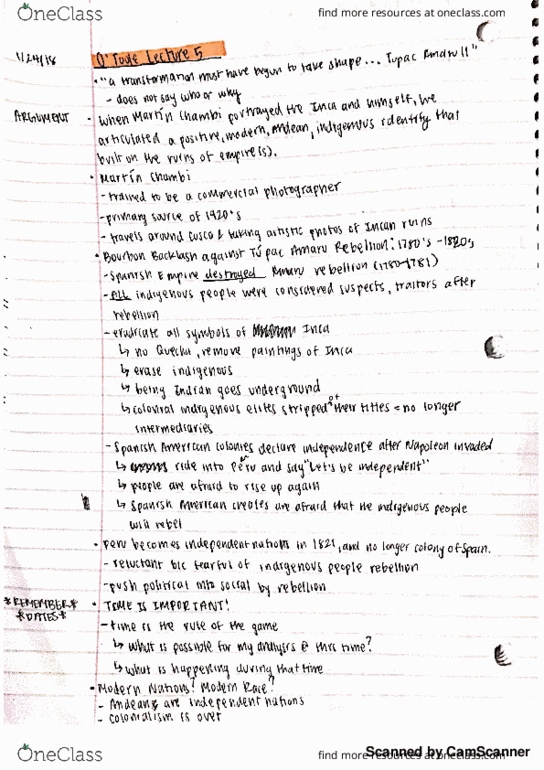 OneClass
find more resources at oneclass.com
1/24/18
O'Toole Lecture 5
• "a transformation must have begun to take shape... Tupac Amaru II"
- does not say who or why
ARGUMENT - When Martín Chambi portrayed the Inca and himself, we
articulated a positive, modern, Andean, indigenous identity that
built on the ruins of empire(s).
• Martín Chambi
- trained to be a commercial photographer
- primary source of 1920's
- travels around Cusco & taking artistic photos of Incan ruins
• Bourbon Backlash against Túpac Amaru Rebellion: 1780's - 1820s
- Spanish Empire destroyed Amaru rebellion (1780-1781)
- ALL indigenous people were considered suspects, traitors after
rebellion
- eradicate all symbols of Inca
↳ no Quechua, remove paintings of Inca
↳ erase indigenous
↳ being Indian goes underground
↳ colonial indigenous elites stripped of their titles = no longer
intermediaries
- Spanish American colonies declare independence after Napoleon invaded
↳ ride into Peru and say "Let's be independent"
↳ people are afraid to rise up again
↳ Spanish American creoles are afraid that the indigenous people
will rebel
• Peru becomes independent nations in 1821, and no longer colony of Spain.
- reluctant b/c fearful of indigenous people rebellion
- push political into social by rebellion
*REMEMBER* • TIME IS IMPORTANT!
*DATES*
- time is the rule of the game
↳ what is possible for my analysis @ this time?
↳ what is happening during that time
• Modern Nations? Modern Race?
- Andeans are independent nations
- colonialism is over
OneClass
find more resources at oneclass.com
Scanned by CamScanner